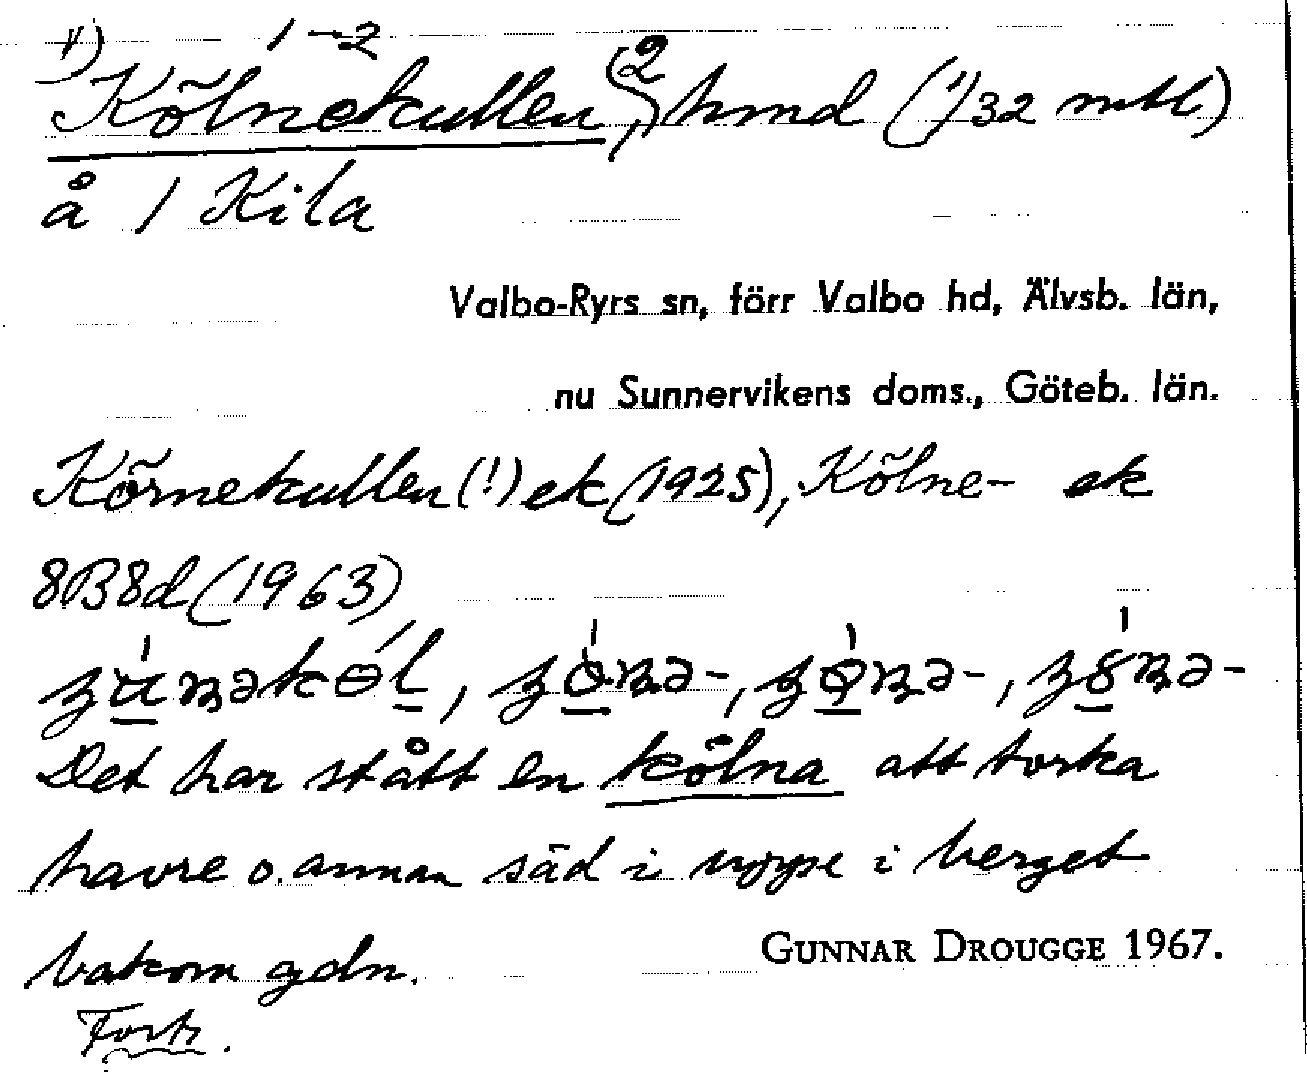 1) 1-2
Kölnekullen, 2) hmd (1/32 mtl)
å 1 Kila
Valbo-Ryrs sn, förr Valbo hd, Älvsb. län,
nu Sunnervikens doms., Göteb. län.
Körnekullen (!) ek (1925), Kölne- ek
8B8d (1963)
Det har stått en kölna att torka
havre o. annan säd i uppe i berget
bakom gdn.
GUNNAR DROUGGE 1967.
Forts.